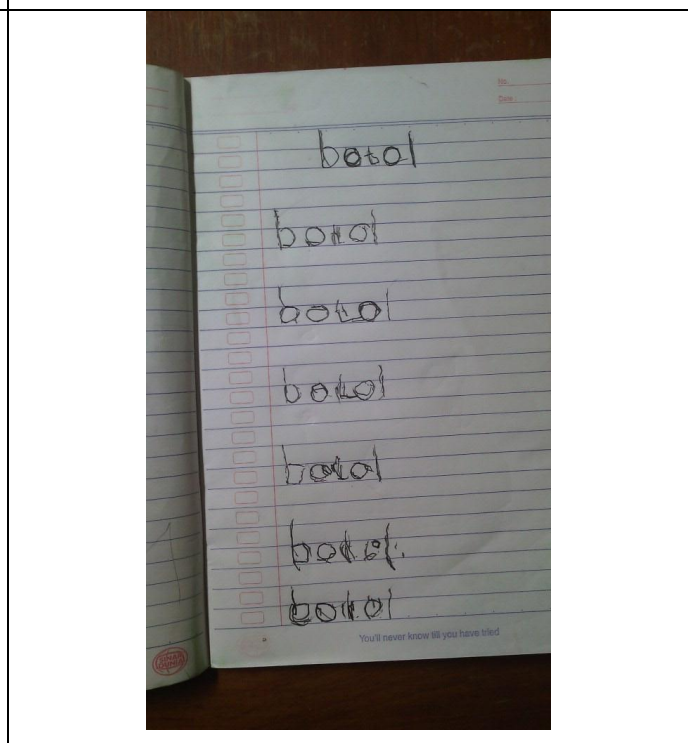 No:
Date:
botol
botol
botol
botol
botol
botol
botol
You'll never know till you have tried